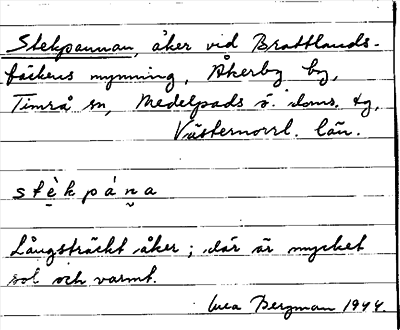 Stekpannan, åker vid Brattlands-
bäckens mynning, Åkerby by,
Timrå sn, Medelpads ö. doms. tg,
Västernorrl. län.
stè̱kpána
Långsträckt åker; där är mycket
sol och varmt.
Bergman 1944.